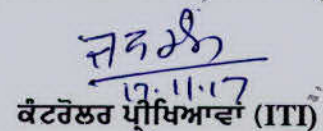 17.11.17
ਕੰਟਰੋਲਰ ਪ੍ਰੀਖਿਆਵਾਂ (ITI)